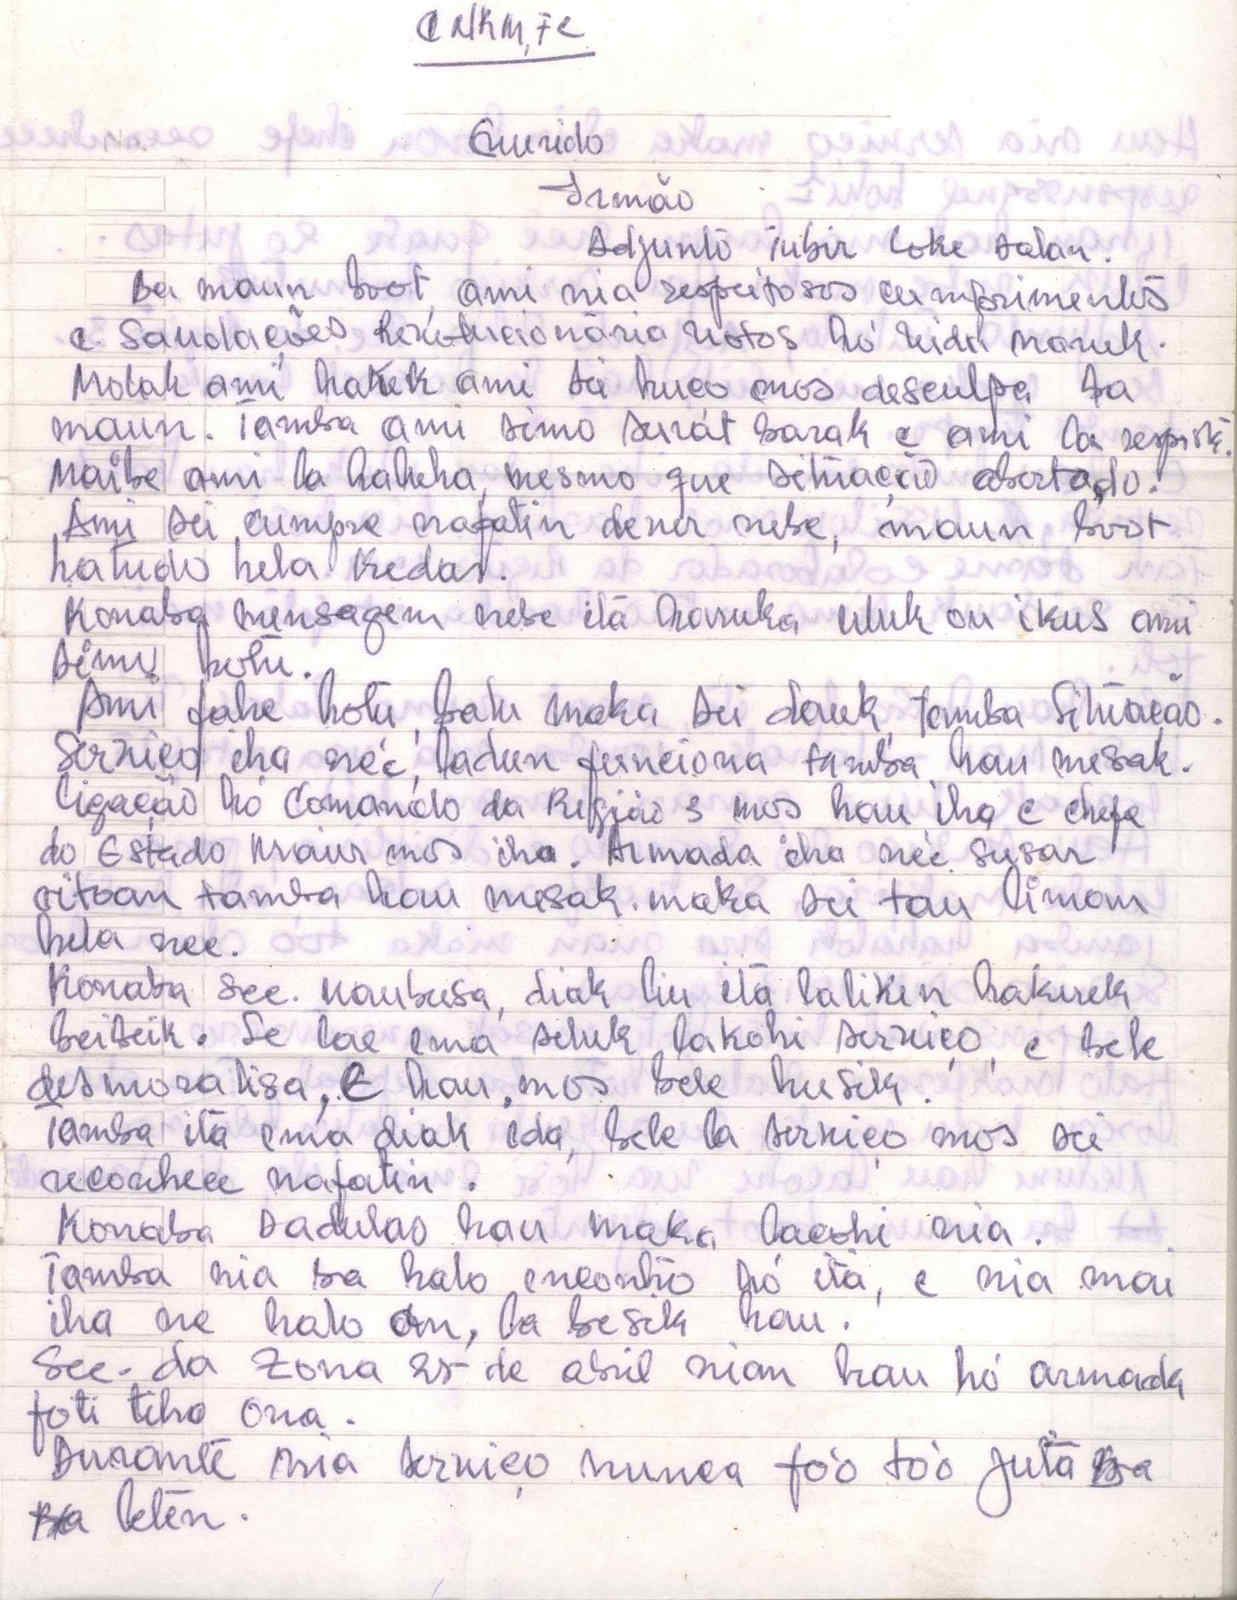 CNRM, FC
Querido
Irmão
Adjunto Tubir Loke dalan.
Ba maun boot, ami nia respeitosos cumprimentos
e Saudações Revolucionária hotos hó
Molok ami hakerek ami sei husu mos desculpa ba
maun. Tamba ami simo surat barak e ami la responde.
Maibe ami la haluha, mesmo que situação
Ami sei cumpre nafatin dever nebe, maun boot
hatudo hela kedas.
Konaba mensagem nebe itá haruka uluk ou ikus ami
simu hotu.
Ami fahe hotu, balu maka sei dauk, tamba situação.
Serviço iha neé, ladun funciona tamba hau mesak.
Ligação hó Comando da Região 3 mos hau iha e chefe
do Estado Maior mos iha. Armada iha neé susar
oitoan tamba hau mesak. maka sei tau liman
hela nee.
Konaba Sec. Maubusa, diak liu itá lalikin hakerek
beibeik. Se lae ema seluk lakohi serviço, e bele
desmoralisa, E hau, mos bele husik.
Tamba itá ema diak ida, bele la serviço mos sei
reconhece nafatin.
Konaba Dadulas hau maka lacohi nia.
Tamba nia ba halo encontro hó itá, e nia mai
iha ne halo an, la besik hau.
Sec. da Zona 25 de abril nian hau hó armada
foti tiha ona.
Durante nia serviço nunca fóo tóo juta ba
leten.